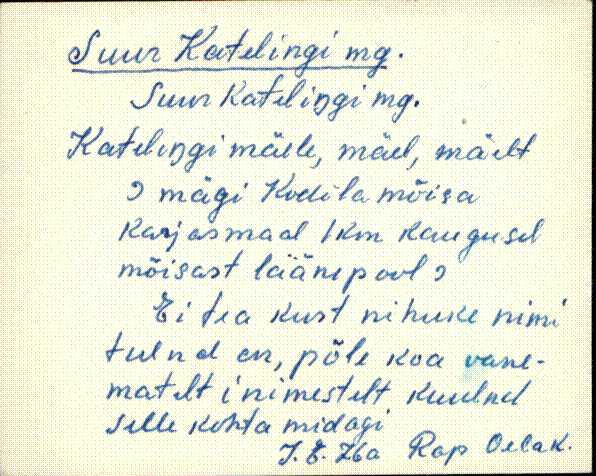 Suur Katelingi mg.
Suur Kateliŋgi mg.
Kateliŋgi mäele, mäel, mäelt
? mägi Kodila mõisa
karjasmaal 1 km kaugusel
mõisast läänepool ?
Ei tea kust nihuke nimi
tulnd on, põle koa vane-
matelt inimestelt kuulnd
selle kohta midagi
Rap